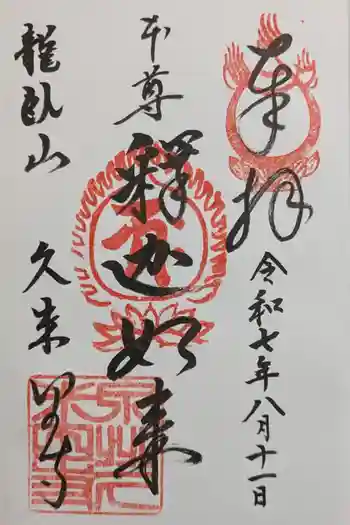 奉拝
令和七年八月十一日
本尊
釋迦如来
龍臥山
久来里寺